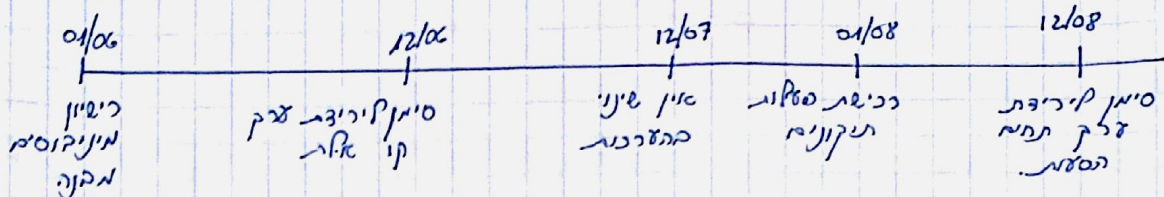 01/06
12/06
12/07
01/08
12/08
רישיון
מיניבוסים
מבנה
סימן לירידת ערך
קו אילת
אין שינוי
בהערכות
רכישת פעילות
תיקונים
סימן לירידת
ערך תחום
הסעות.